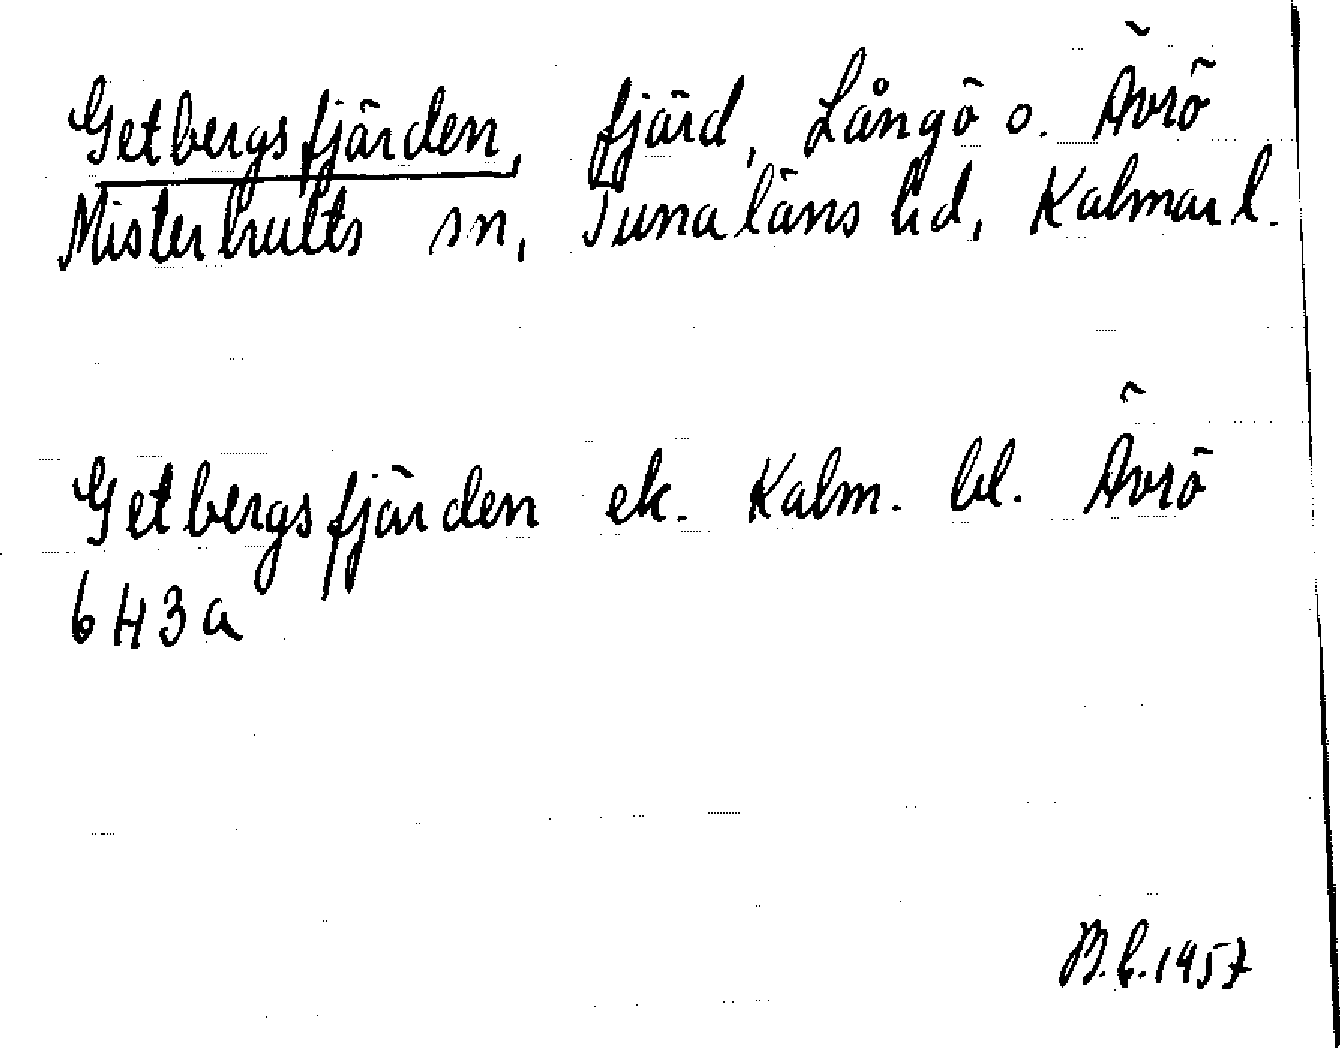 Getbergsfjärden, fjärd, Långö o. Ävrö
Misterhults sn, Tunaläns hd, Kalmar l.
Getbergsfjärden ek. Kalm. bl. Ävrö
6H3a
B.b.1957